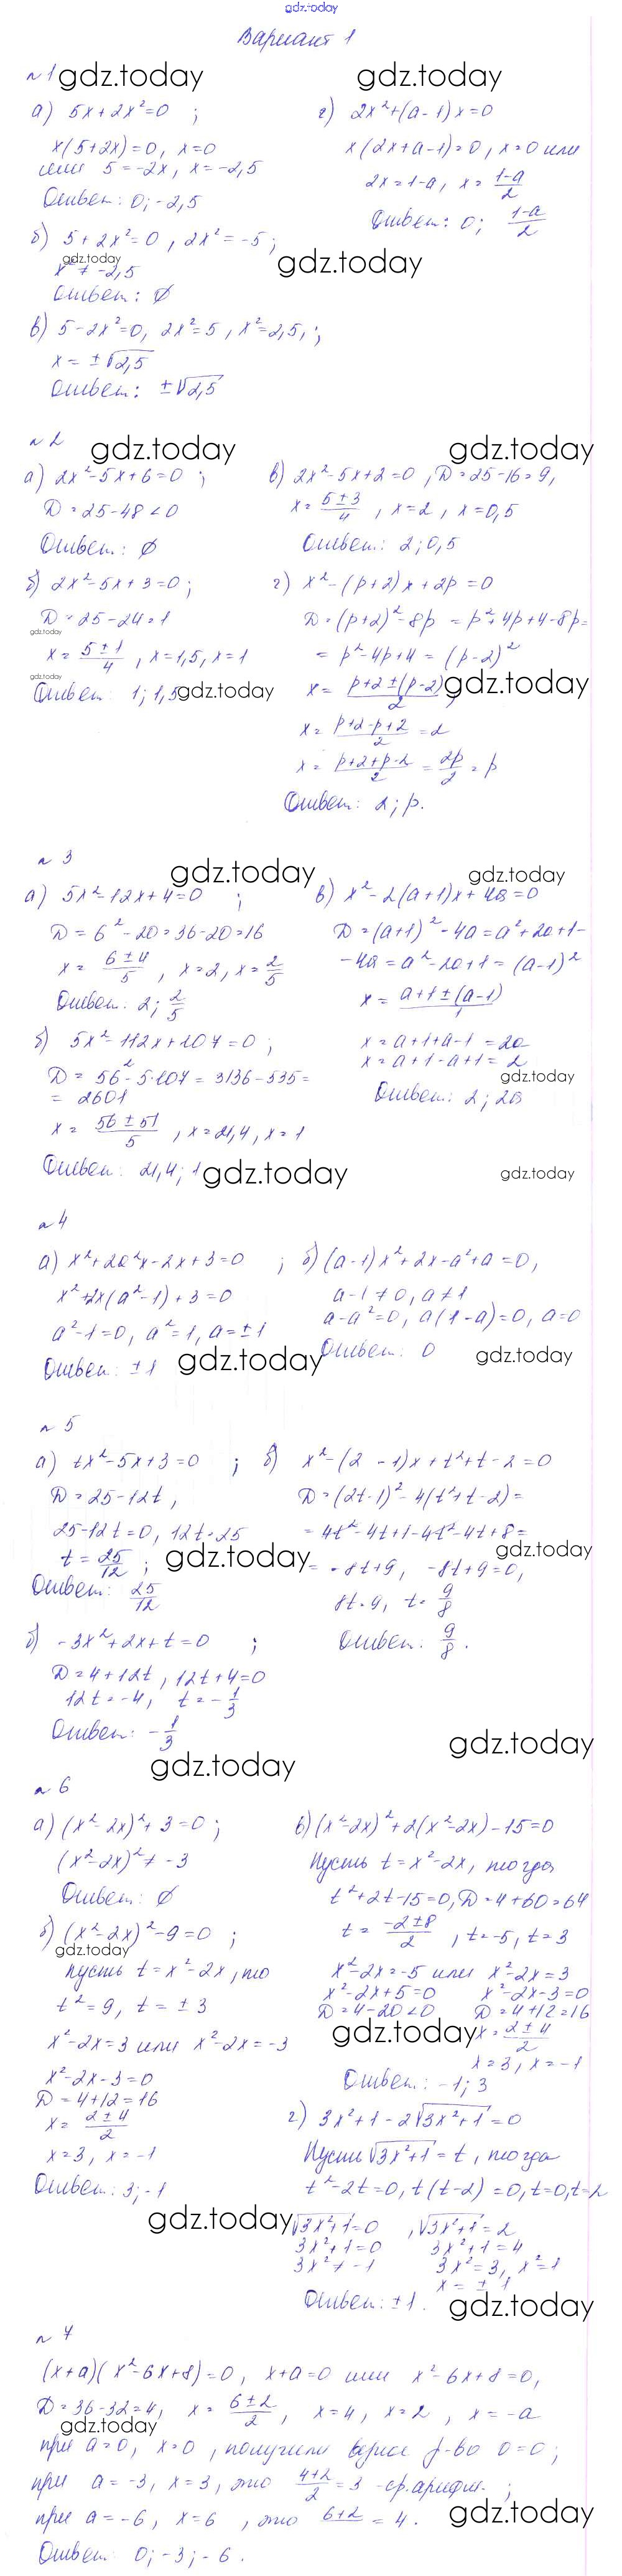 gdz.today
Вариант 1
№1
а) 5x+2x²=0 ;
x(5+2x)=0, x=0
или 5=-2x, x=-2,5
Ответ: 0; -2,5
б) 5+2x²=0, 2x²=-5;
x²≠-2,5
Ответ: ∅
в) 5-2x²=0, 2x²=5, x²=2,5, ;
x=±√2,5
Ответ: ±√2,5
г) 2x²+(a-1)x=0
x(2x+a-1)=0, x=0 или
2x=1-a, x=(1-a)/2
Ответ: 0; (1-a)/2
№2
а) 2x²-5x+6=0 ;
D=25-48<0
Ответ: ∅
б) 2x²-5x+3=0;
D=25-24=1
x=(5±1)/4, x=1,5, x=1
Ответ: 1; 1,5
в) 2x²-5x+2=0, D=25-16=9,
x=(5±3)/4, x=2, x=0,5
Ответ: 2; 0,5
г) x²-(p+2)x+2p=0
D=(p+2)²-8p=p²+4p+4-8p=
=p²-4p+4=(p-2)²
x=(p+2±(p-2))/2,
x=(p+2-p+2)/2=2
x=(p+2+p-2)/2=2p/2=p
Ответ: 2; p.
№3
а) 5x²-12x+4=0 ;
D=6²-20=36-20=16
x=(6±4)/5, x=2, x=2/5
Ответ: 2; 2/5
б) 5x²-112x+107=0 ;
D=56²-5·107=3136-535=
=2601
x=(56±51)/5, x=21,4, x=1
Ответ: 21,4; 1
в) x²-2(a+1)x+4a=0
D=(a+1)²-4a=a²+2a+1-
-4a=a²-2a+1=(a-1)²
x=(a+1±(a-1))/1
x=a+1+a-1=2a
x=a+1-a+1=2
Ответ: 2; 2a
№4
а) x²+2a²x-2x+3=0 ;
x²+2x(a²-1)+3=0
a²-1=0, a²=1, a=±1
Ответ: ±1
б) (a-1)x²+2x-a²+a=0,
a-1≠0, a≠1
a-a²=0, a(1-a)=0, a=0
Ответ: 0
№5
а) tx²-5x+3=0 ;
D=25-12t,
25-12t=0, 12t=25
t=25/12 ;
Ответ: 25/12
б) -3x²+2x+t=0 ;
D=4+12t, 12t+4=0
12t=-4, t=-1/3
Ответ: -1/3
в) x²-(2 -1)x+t²+t-2=0
D=(2t-1)²-4(t²+t-2)=
=4t²-4t+1-4t²-4t+8=
=-8t+9, -8t+9=0,
8t=9, t=9/8
Ответ: 9/8.
№6
а) (x²-2x)²+3=0 ;
(x²-2x)²≠-3
Ответ: ∅
б) (x²-2x)²-9=0 ;
Пусть t=x²-2x, то
t²=9, t=±3
x²-2x=3 или x²-2x=-3
x²-2x-3=0
D=4+12=16
x=(2±4)/2
x=3, x=-1
Ответ: 3; -1
в) (x²-2x)²+2(x²-2x)-15=0
Пусть t=x²-2x, тогда
t²+2t-15=0, D=4+60=64
t=(-2±8)/2, t=-5, t=3
x²-2x=-5 или x²-2x=3
x²-2x+5=0 x²-2x-3=0
D=4-20<0 D=4+12=16
x=(2±4)/2
x=3, x=-1
Ответ: -1; 3
г) 3x²+1-2√3x²+1=0
Пусть √3x²+1=t, тогда
t²-2t=0, t(t-2)=0, t=0, t=2
√3x²+1=0 , √3x²+1=2
3x²+1=0 3x²+1=4
3x²≠-1 3x²=3, x²=1
x=±1
Ответ: ±1.
№7
(x+a)(x²-6x+8)=0, x+a=0 или x²-6x+8=0,
D=36-32=4, x=(6±2)/2, x=4, x=2, x=-a
при a=0, x=0, получили р-во 0=0;
при a=-3, x=3, это (4+2)/2=3 -ср.арифм. ;
при a=-6, x=6, это (6+2)/ =4.
Ответ: 0; -3; -6.